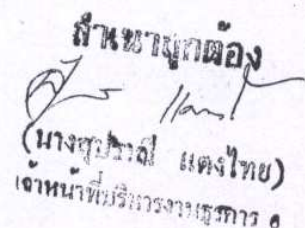 สำเนาถูกต้อง
(นางสุปราณี แตงไทย)
เจ้าหน้าที่บริหารงานธุรการ ๑